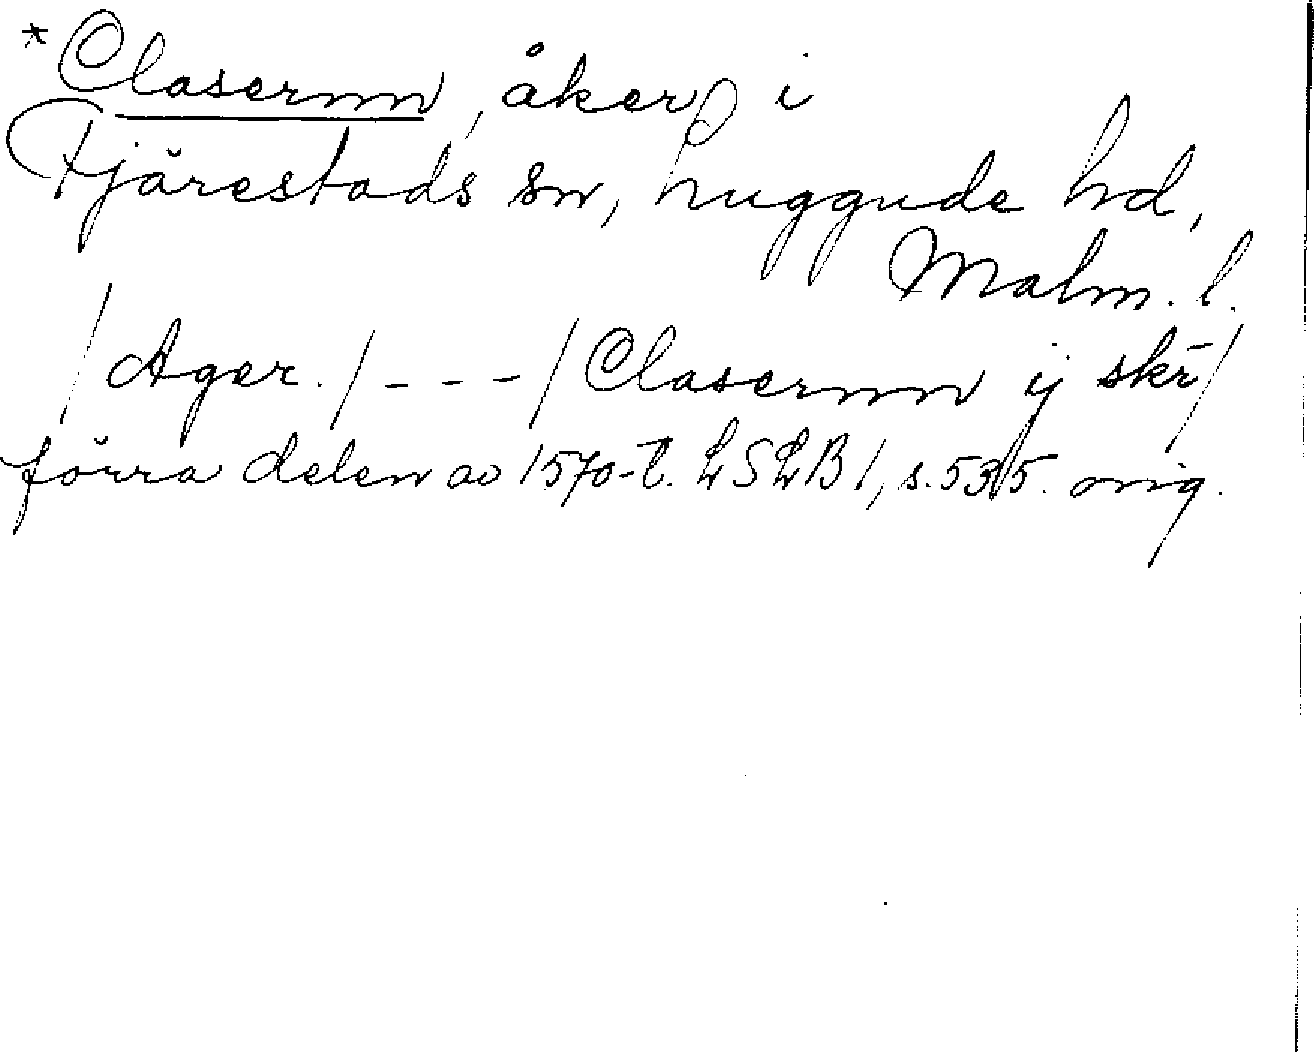 *Clasernn, åker, i
Fjärestads sn, Luggude hd,
Malm. l.
/Ager./---/Clasernn ij skr̄/
förra delen av 1570-t. LSLB I, s. 535. orig.